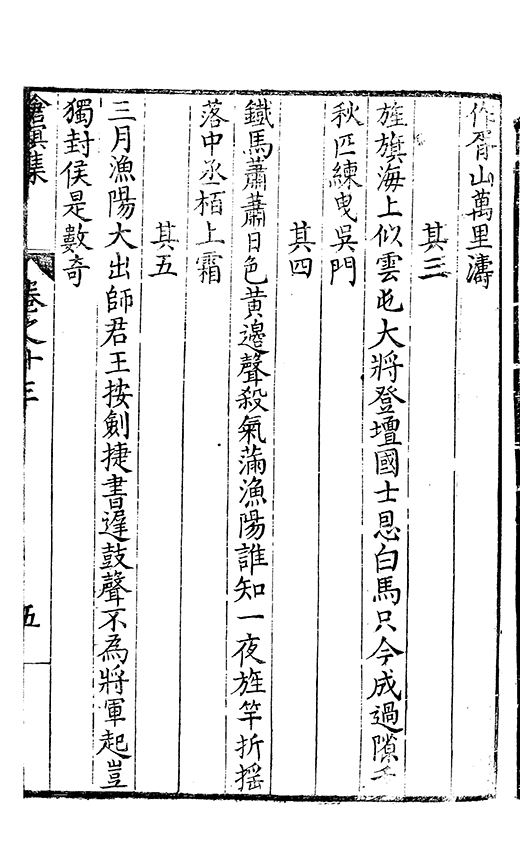 作胥山萬里濤
其三
旌旗海上似雲屯大將登壇國士恩白馬只今成過隙千
秋匹練曳吳門
其四
鐵馬蕭蕭日色黃邊聲殺氣滿漁陽誰知一夜旌竿折搖
落中丞栢上霜
其五
三月漁陽大出師君王按劍捷書遲鼓聲不為將軍起豈
獨封侯是數奇
滄溟集 卷之十三 五